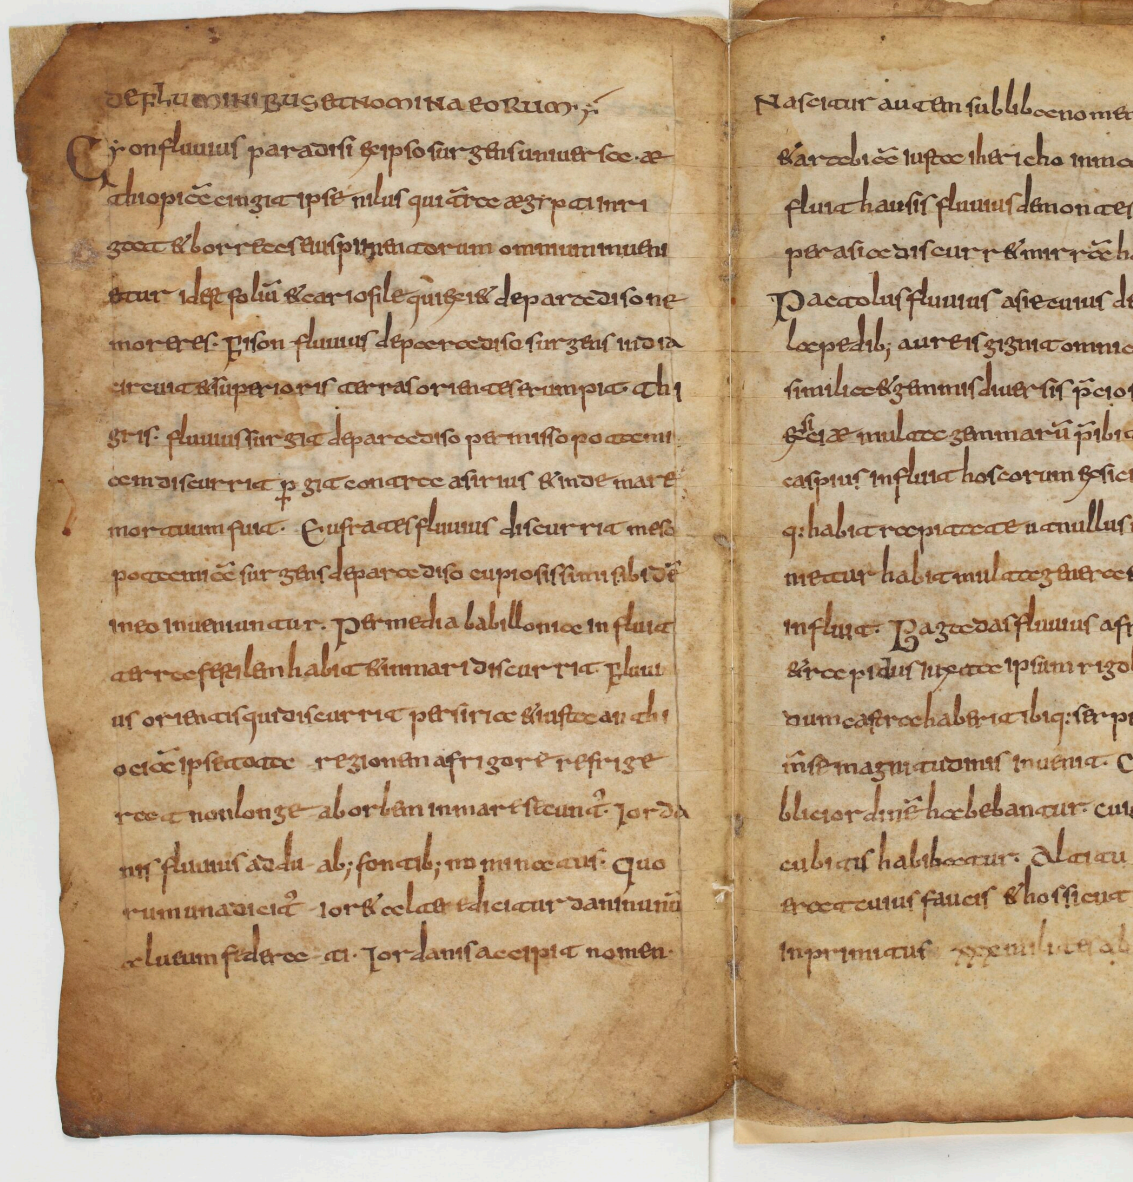 DE FLUMINIBUS ET NOMINA EORUM
Gyon fluuius paradisi & ipso surgens uniuersae . ae
thiopiā cingit ipse nilus qui terrae aegypti inri
gat & borretes eius pimentorum omnium inueni
etur idest foliū & cariofile qui exi& de paradiso ne
moreres. Fison fluuius de paradiso surgens india
circuit & superioris terras orientes erumpit. thi
gris. fluuius surgit de paradiso per misso potemi
ae in discurrit p̱git contra asirius & inde mare
mortuum fuit. Eufrates fluuius discurrit meso
potamiā surgens de paradiso cupiosissimi sibi dē
in eo inueniuntur. Per media babilloniae influit
terra fertilem habit & in mari discurrit. Fluui
us orientis qui discurrit per sirice & iusta au thi
ociā ipse tota regionem a frigore refrige
rat non longe ab orbem in mare iacunt̄. Jorda
nis fluuius a ddu ab; fontib; nominatus. Quo
rum una dicit̄ ior & alter edicitur dan in unū
alueum federa ti. Jordanis accipit nomen.
Nascitur autem sub libaeno me
& artabicē iusta ihericho in ma
fluit hausis fluuius de montes
per asiae discurr& mirrā ha
Pactolus fluuius asie cuius de
lapedib; aureis gignit omnia
similia & gemmis diuersis p̄cios
multae gemmarū p̄ibi
caspius influit hos eorum
q: habit rapitate ut nullus
metur habit multa genera
influit. Bagradas fluuius afr
& rapidus iuxta ipsum rigol
dum castra haberit ibiq: serpe
mse magnitudinis inuenit.
blicior dinē habebantur. cui
cubitis habibatur. Altitu
erat cuius faucis & hos sicut
in primitus xxx milites ab